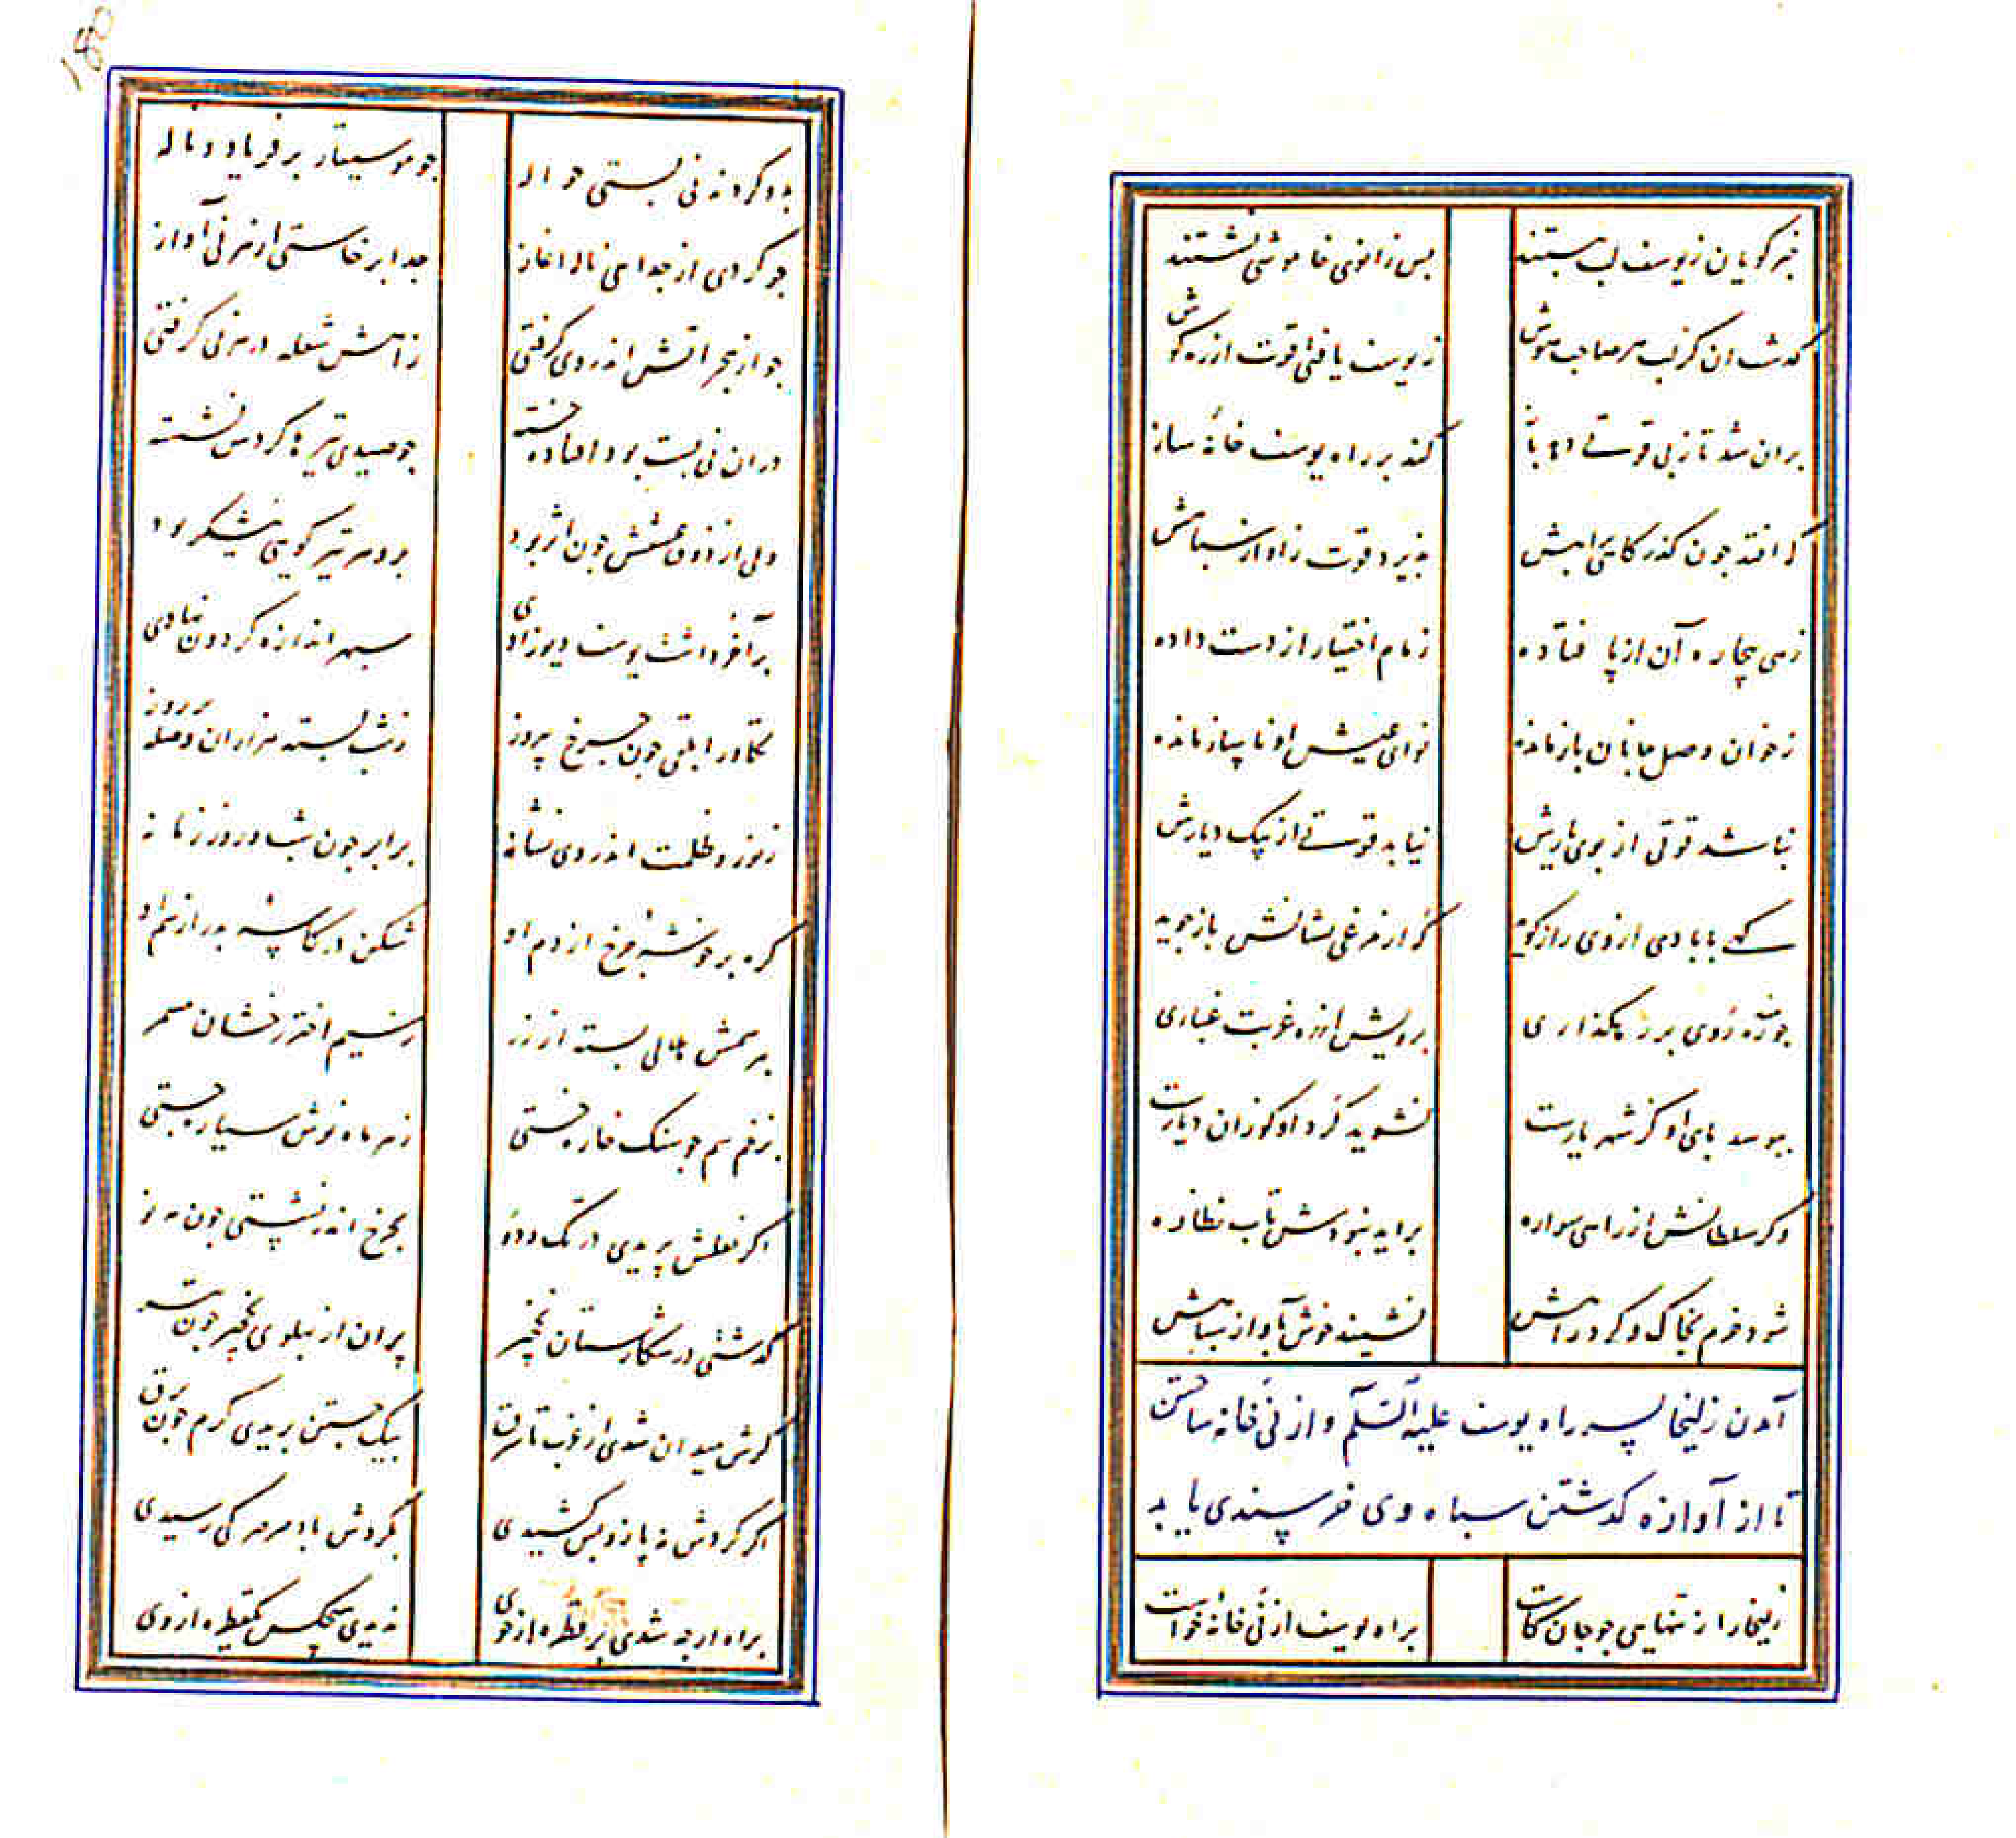 خبر کویان ز یوسف لب ببستند بس زانوی خاموشی نشستند
کذشت ان کز لب هر صاحب هوش ز یوسف یافتی قوت از ره کوش
بران شد تا ز بی قوتی دهد باز کند بر راه یوسف خانهٔ ساز
که افتد جون کذر کاهی براهش بذیرد قوت ز اواز سپاهش
زهی بیچاره آن از پا فتاده زمام اختیار از دست داده
ز خوان وصل جانان باز مانده نوای عیش او ناساز مانده
نباشد قوتی از بوی یارش نیابد قوتی از پیک دیارش
کهی با بادی از وی راز کوید که از مرغی نشانش باز جوید
جو بیند ره روی بر رهکذاری برویش از ره غربت غباری
ببوسد پای او کز شهر یارست نشوید کرد او کوزان دیارست
وکر سلطانش از راهی سواره براید نبودش تاب نظاره
شود خرم بخاک و کرد راهش نشیند خوش بآواز سپاهش
آمدن زلیخا بسر راه یوسف علیه السلم و از نی خانه ساختن
تا از آوازه کذشتن سپاه وی خرسندی یابد
زلیخا را ز تنهایی جو جان کاست براه یوسف از نی خانهٔ خواست
بدو کردند نی بستی حواله جو موسیقار پر فریاد و ناله
جو کردی از جدایی ناله اغاز جدا برخاستی از هر نی آواز
جو از هجر اتش اندر وی کرفتی ز اهش شعله در هر نی کرفتی
دران نی بست بود افتاده خسته جو صیدی تیرها کردش نشسته
ولی از ذوق عشقش جون اثر بود برو هر تیر کویی نیشکر بود
بر آخر داشت یوسف دیوزادی سپهر اندازه کردون نهادی
تکاور ابلقی جون جرخ پیروز ز شب بسته هزاران وصله بر روز
ز نور و ظلمت اندر وی نشانه برابر جون شب و روز زمانه
کره بر خوشهٔ جرخ از دم او شکن در کاسهٔ بدر از سم او
بهر سمش هلالی بسته از زر ز سیم اختر رخشان مسمر
بزخم سم جو سنک خاره خستی ز هر ماه نوش سیاره جستی
اکر نعلش پریدی در تک و دو بجرخ اندر نشستی جون مه نو
کذشتی در شکارستان نخجیر پران از پهلوی نخجیر جون تیر
کرش میدان شدی از غرب تا شرق بیک جستن بریدی کرم جون برق
اکر کردش نه پا از وپس کشیدی بکردش باد صرصر کی رسیدی
براه ارجه شدی پر قطره از خوی ندیدی هیجکس یکقطره از وی